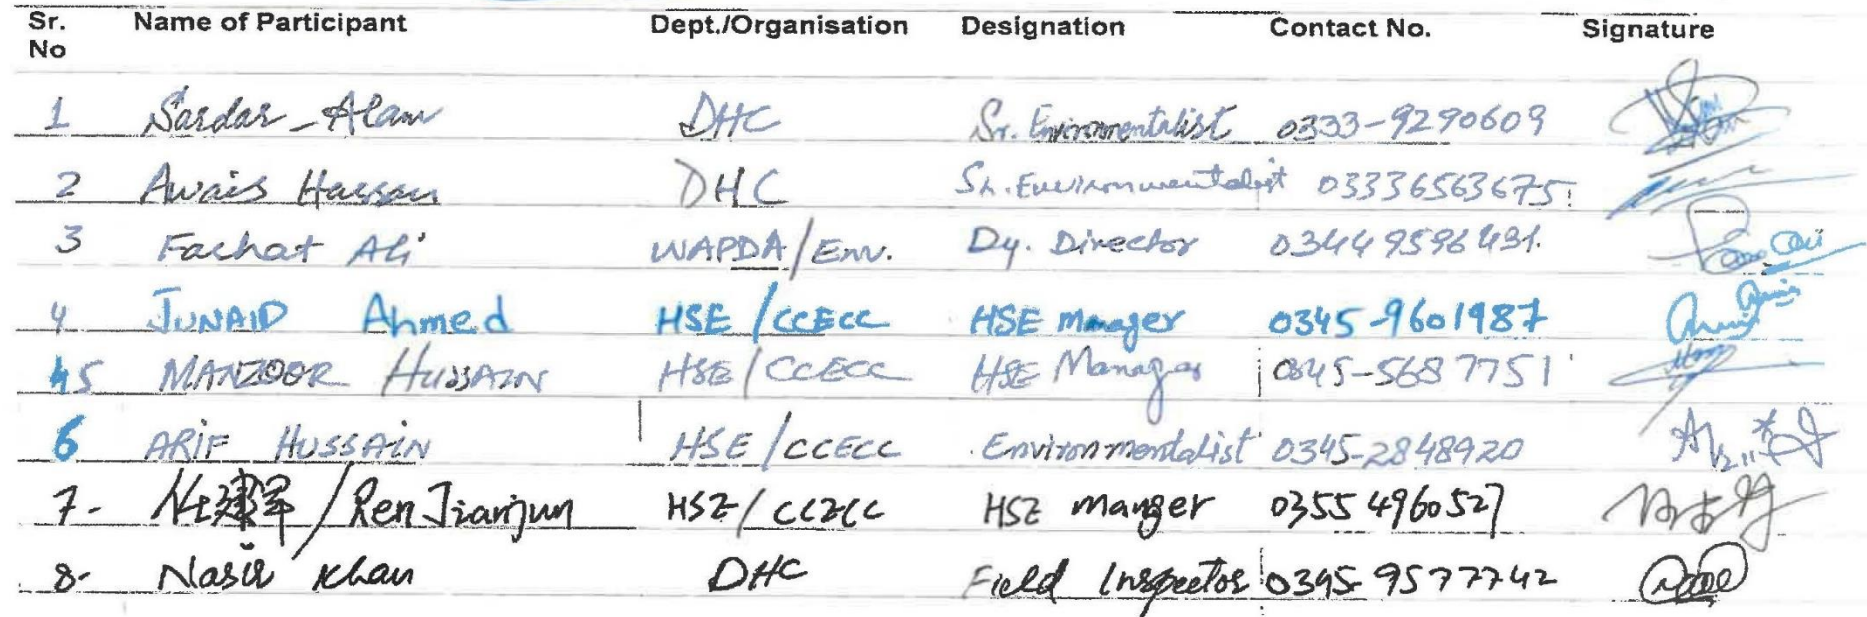 Sr. No Name of Participant Dept./Organisation Designation Contact No. Signature
1 Sardar Alam DHC Sr. Environmentalist 0333-9290609
2 Awais Hassan DHC Sr. Environmentalist 03336563675
3 Fachat Ali WAPDA/Env. Dy. Director 03449596431
4 JUNAID Ahmed HSE/CCECC HSE Manager 0345-9601987
5 MANZOOR HUSSAIN HSE/CCECC HSE Manager 0345-5687751
6 ARIF HUSSAIN HSE/CCECC Environmentalist 0345-2848920
7- 任建军/Ren Jianjun HSE/CCECC HSE manger 0355 4960527
8- Nasir Khan DHC Field Inspector 0345-9577742